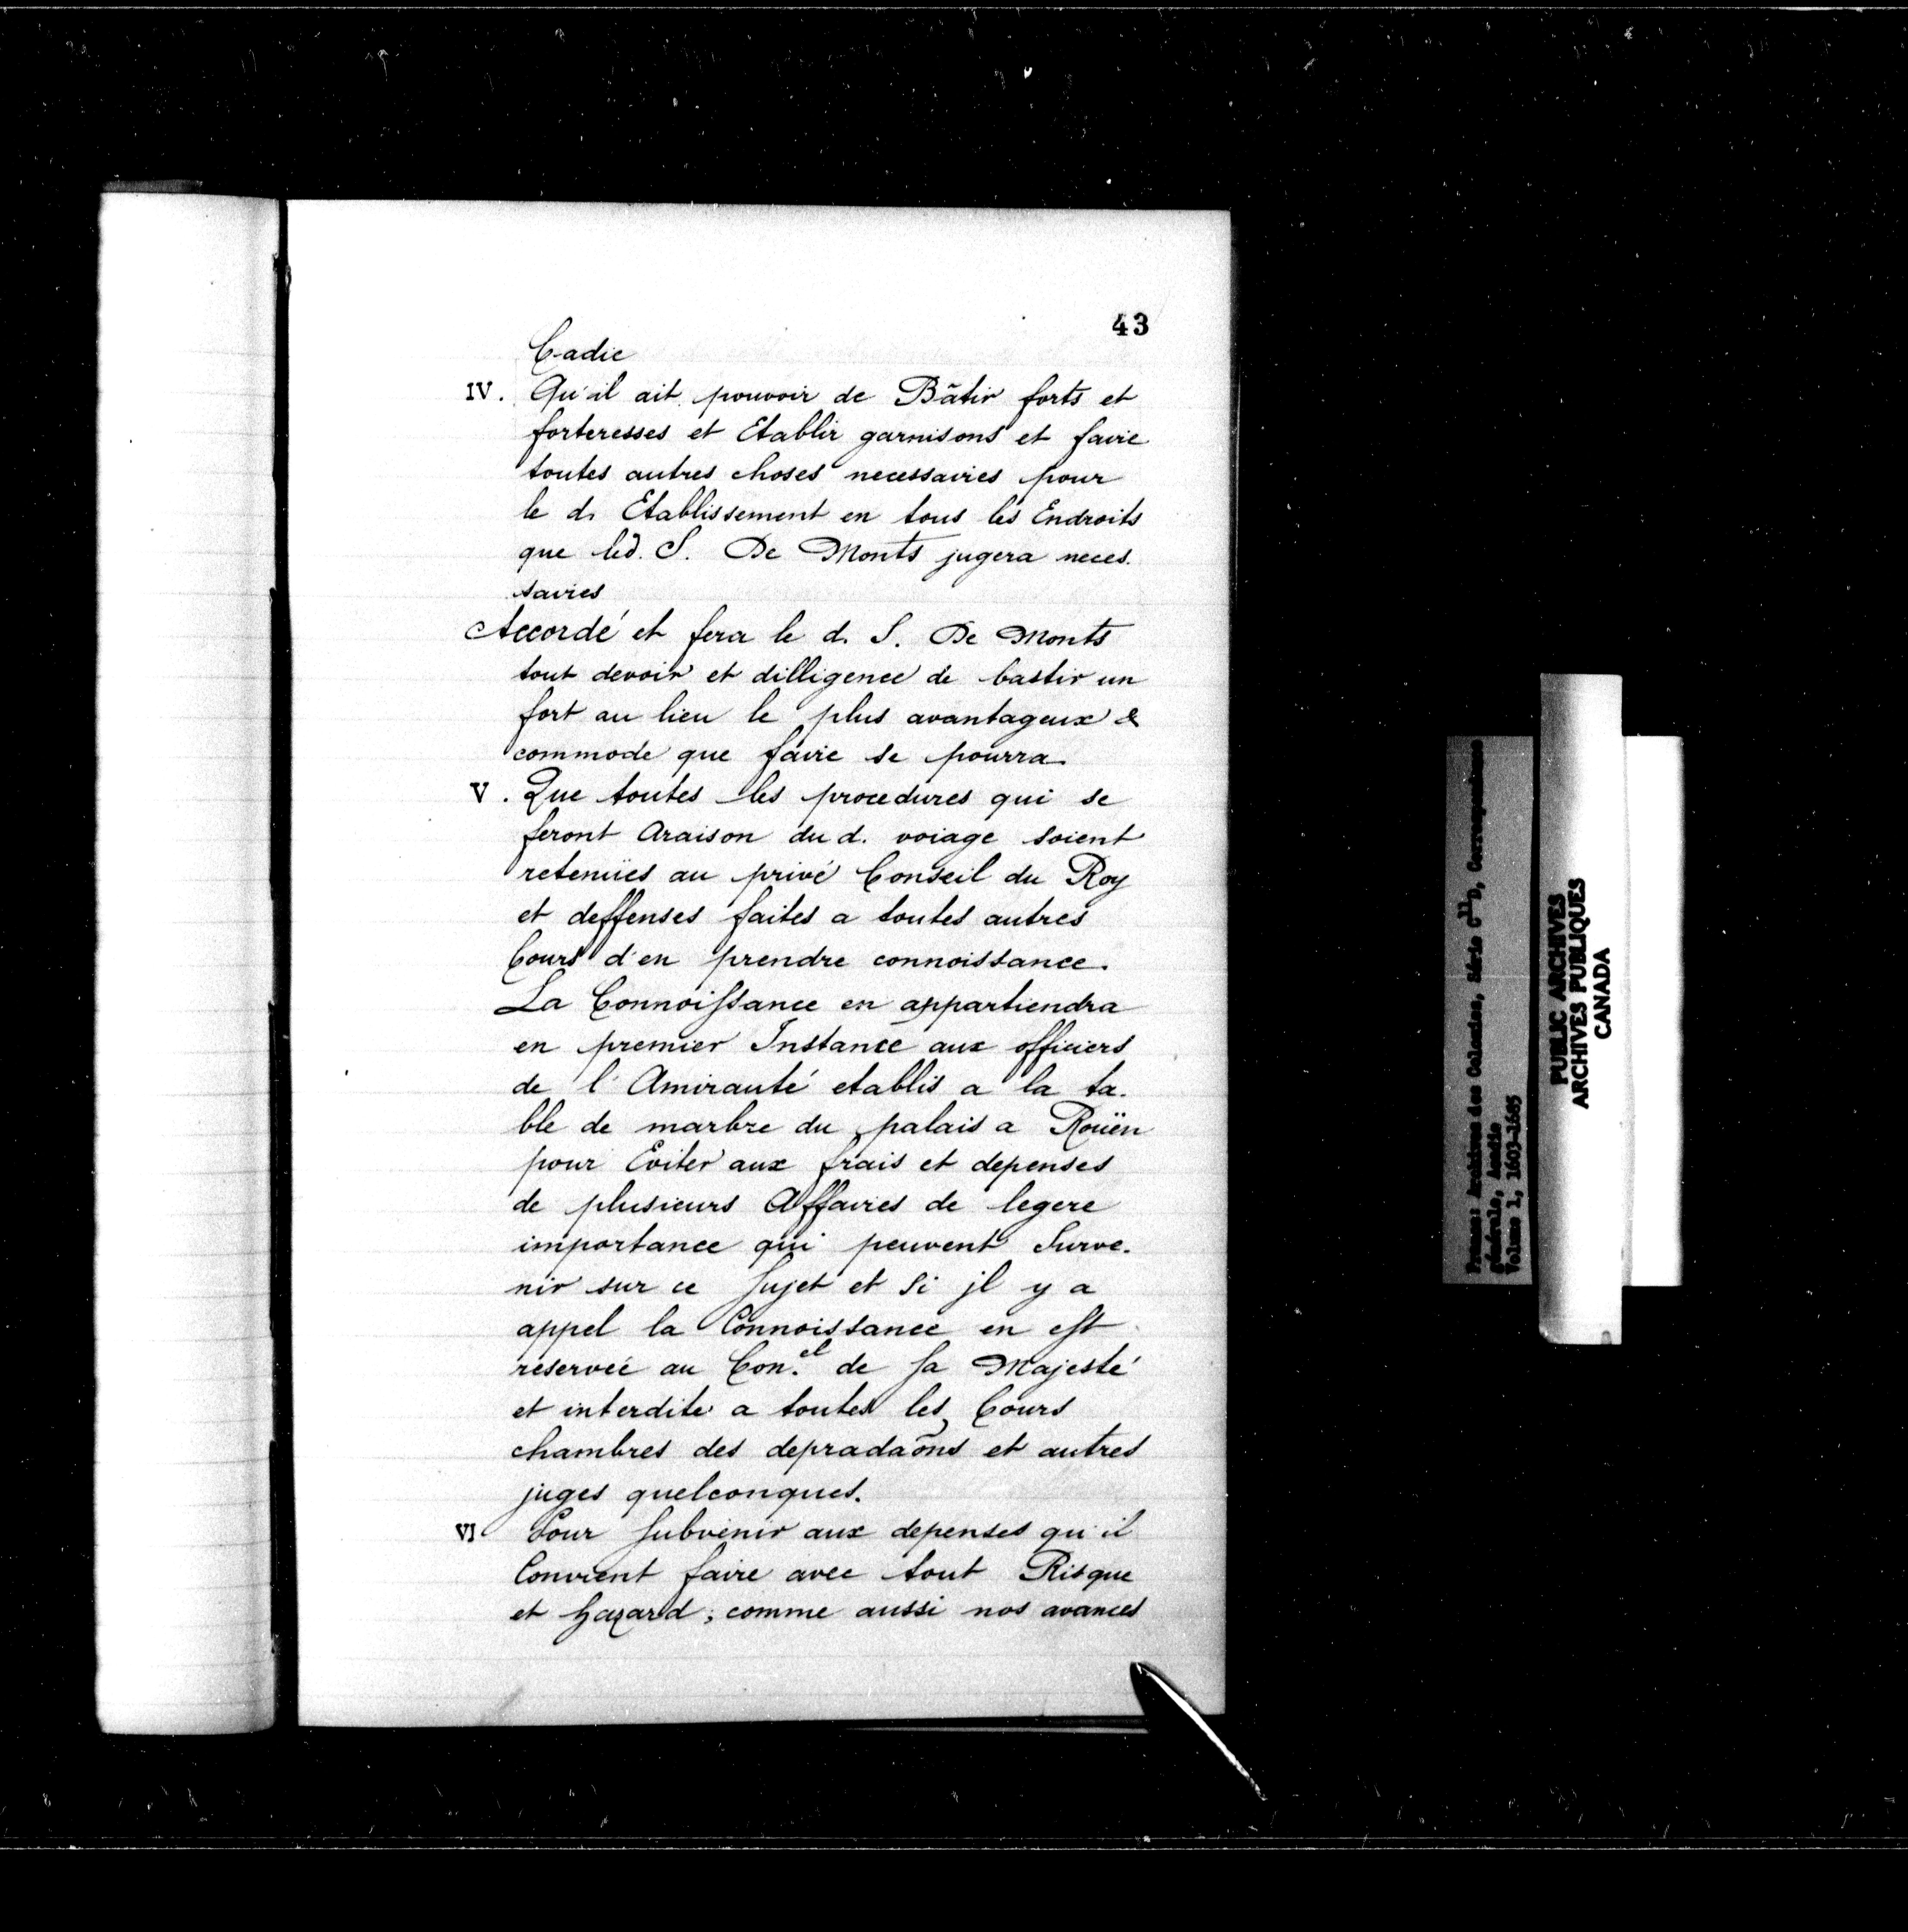 43
Cadie
IV. Qu'il ait pouvoir de Bâtir forts et
forteresses et Etablir garnisons et faire
toutes autres choses necessaires pour
le d. Etablissement en tous les Endroits
que led. S. De Monts jugera neces.
saires
Accordé et fera le d. S. De Monts
tout devoir et dilligence de bastir un
fort au lieu le plus avantageux &
commode que faire se pourra.
V. Que toutes les procedures qui se
feront Araison du d. voiage soient
retenües au privé Conseil du Roy
et deffenses faites a toutes autres
Cours d'en prendre connoissance.
La Connoissance en appartiendra
en premier Instance aux officiers
de l'Amirauté etablis a la ta.
ble de marbre du palais a Roüen
pour Eviter aux frais et depenses
de plusieurs Affaires de legere
importance qui peuvent Surve.
nir sur ce Sujet et Si jl y a
appel la Connoissance en est
reservée au Con.el de Sa Majesté
et interdite a toutes les Cours
chambres des depradaõns et autres
juges quelconques.
VI Pour Subvenir aux depenses qu'il
Convient faire avec tout Risque
et hazard; comme aussi nos avances
France: Archives des Colonies, Série C11D, Correspondance
générale, Acadie
Volume 1, 1603-1685
PUBLIC ARCHIVES
ARCHIVES PUBLIQUES
CANADA